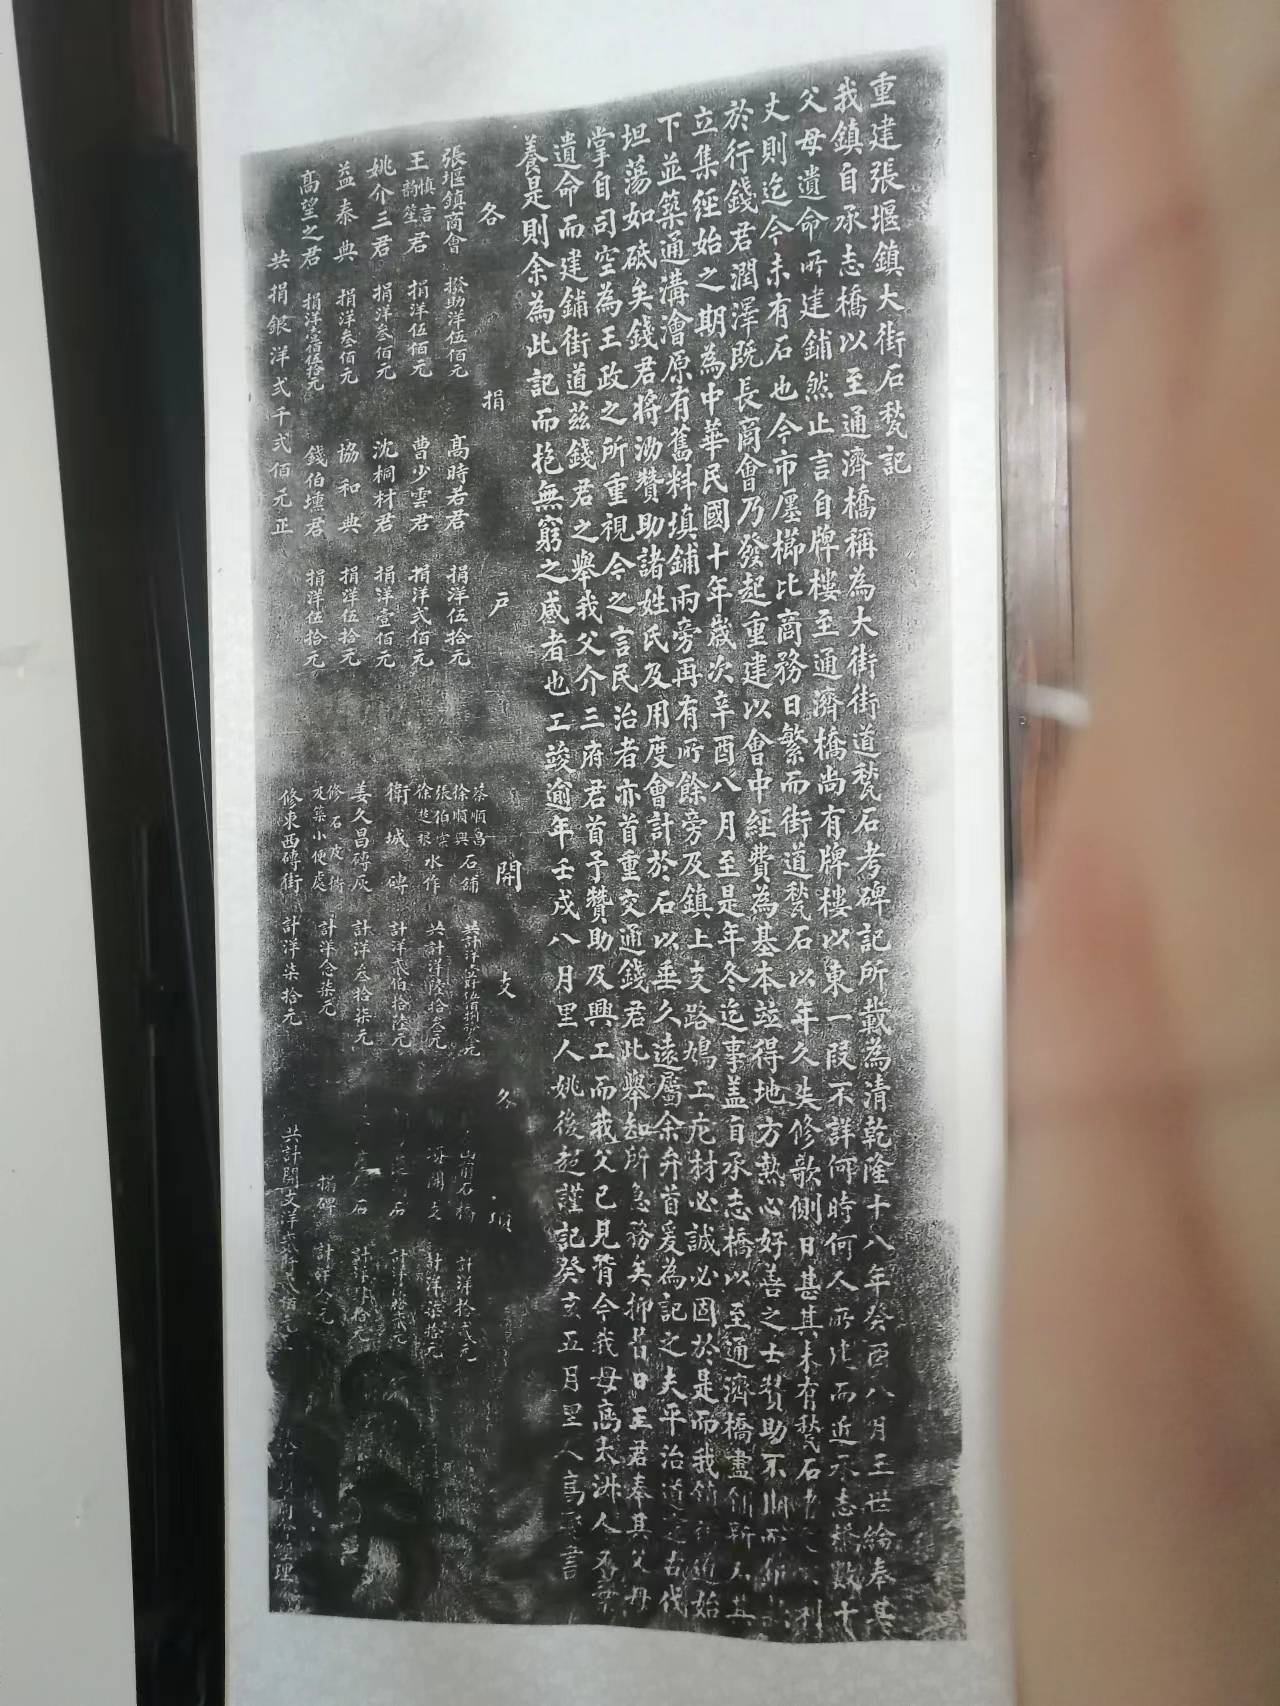 重建張堰鎮大街石甃記
我鎮自承志橋以至通濟橋稱為大街街道甃石考碑記所載為清乾隆十八年癸酉八月王世綸奉其
父母遺命所建鋪然止言自牌樓至通濟橋尚有牌樓以東一段不詳何時何人所建而近承志橋數十
丈則迄今未有石也今市廛櫛比商務日繁而街道甃石以年久失修欹側日甚其未有甃石者利
於行錢君潤澤既長商會乃發起重建以會中經費為基本並得地方熱心好善之士贊助不期而
立集經始之期為中華民國十年歲次辛酉八月至是年冬迄事蓋自承志橋以至通濟橋盡作新石其
下並築通溝澮原有舊料填鋪兩旁再有所餘旁及鎮上支路鳩工庀材必誠必固於是而我鎮街道始
坦蕩如砥矣錢君將泐贊助諸姓氏及用度會計於石以垂久遠屬余弁首爰為記之夫平治道之古代
掌自司空為王政之所重視今之言民治者亦首重交通錢君此舉知所急務矣抑昔日王君奉其父母
遺命而建鋪街道茲錢君之舉我父介三府君首予贊助及興工而我父已見背今我母高太淑人不
養是則余為此記而抱無窮之慼者也工竣逾年壬戌八月里人姚後超謹記癸亥五月里人高書
各捐戶
張堰鎮商會 撥助洋伍佰元 高時若君 捐洋伍拾元
王慎言韵笙君 捐洋伍佰元 曹少雲君 捐洋弍佰元
姚介三君 捐洋叁佰元 沈桐材君 捐洋壹佰元
益泰典 捐洋叁佰元 協和典 捐洋伍拾元
高望之君 捐洋壹佰伍拾元 錢伯壎君 捐洋伍拾元
共捐銀洋弍千弍佰元正
開支各項
蔡順昌徐順興石鋪 共計洋 元 山前石橋 計洋拾弍元
張伯棠徐楚珍水作 共計洋陸拾叁元 開支 計洋柒拾元
衛城磚 計洋弍佰拾陸元 石 計洋 元
姜久昌磚灰 計洋叁拾柒元 石 計洋 拾元
修石皮街及築小便處 計洋念柒元 搨碑 計洋 元
修東西磚街 計洋柒拾元 共計開支洋 經理